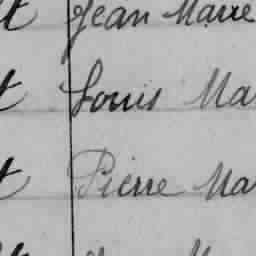 t Jean Marie
t Louis Ma
t Pierre Ma